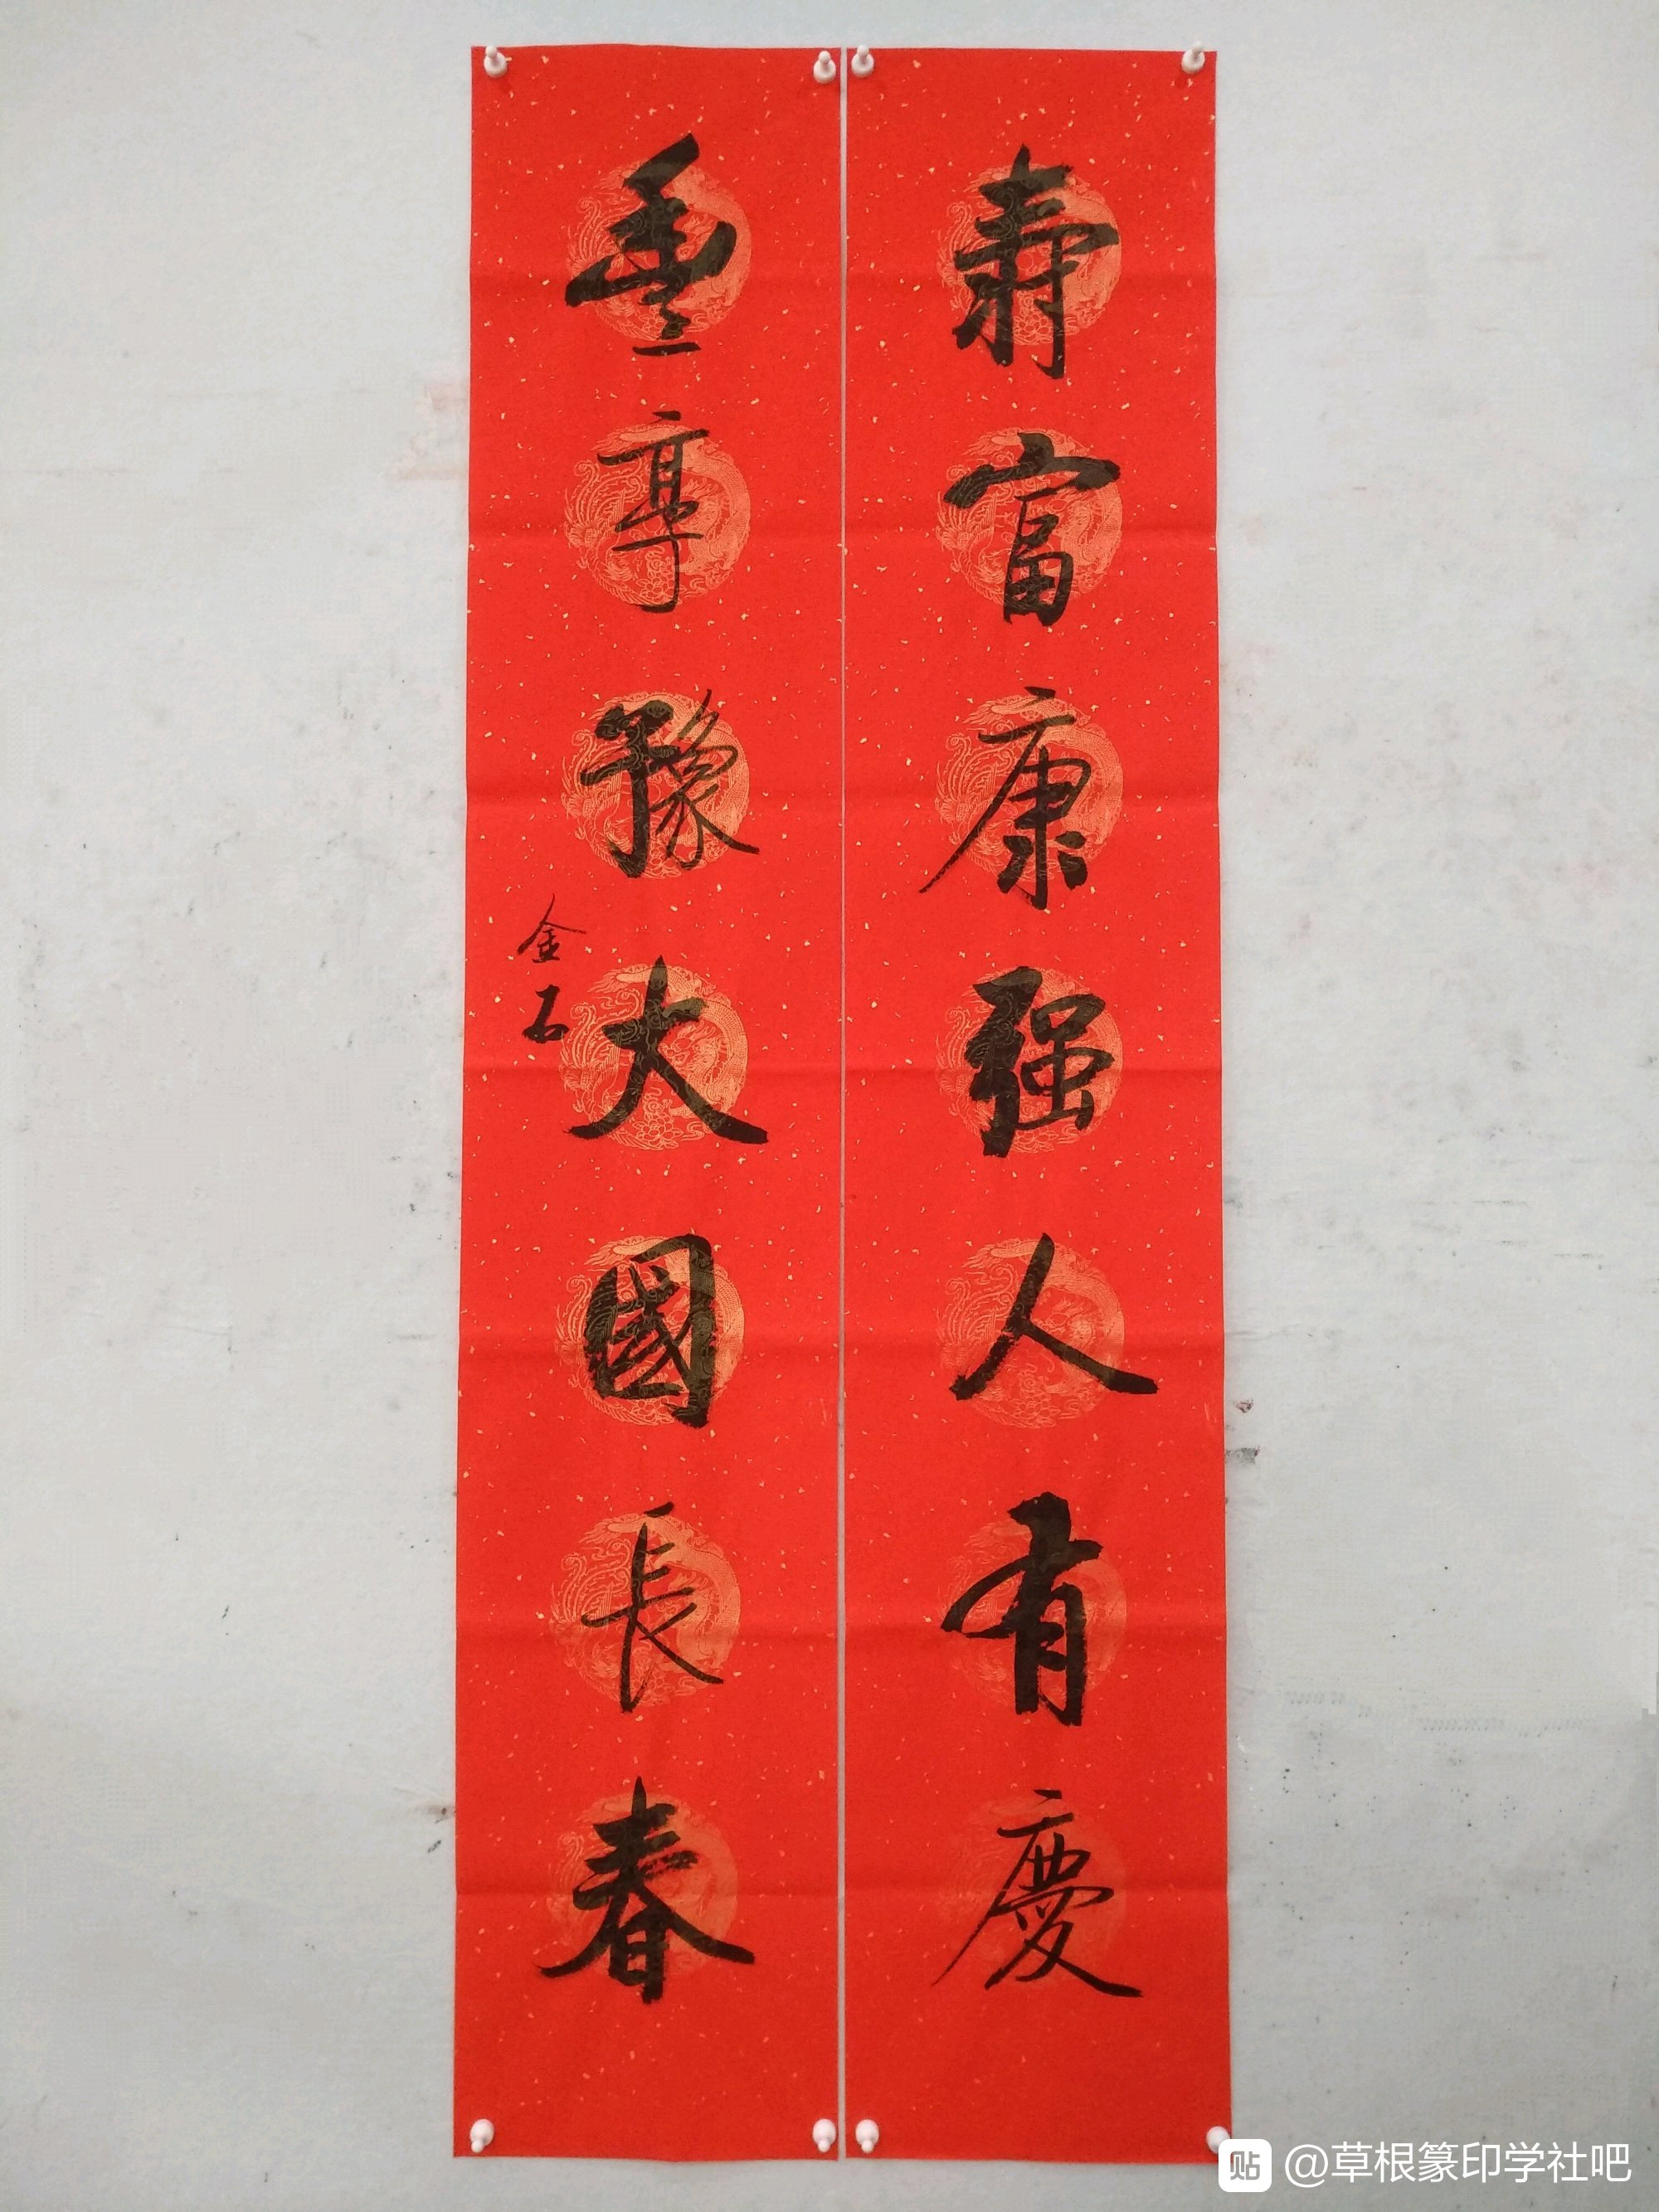 壽富康强人有慶
豐亨豫大國長春
金石
貼 @草根篆印学社吧